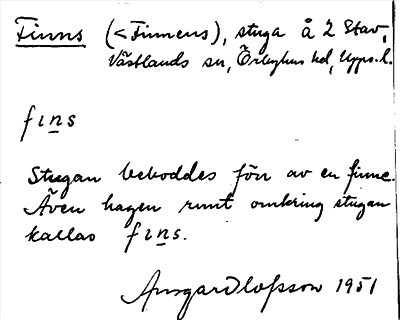 Finns (< Finnens), stuga å 2 Stav,
Västlands sn, Örbyhus hd, Upps. l.
fins
Stugan beboddes förr av en finne.
Även hagen runt omkring stugan
kallas fins.
Ansgar Olofsson 1951